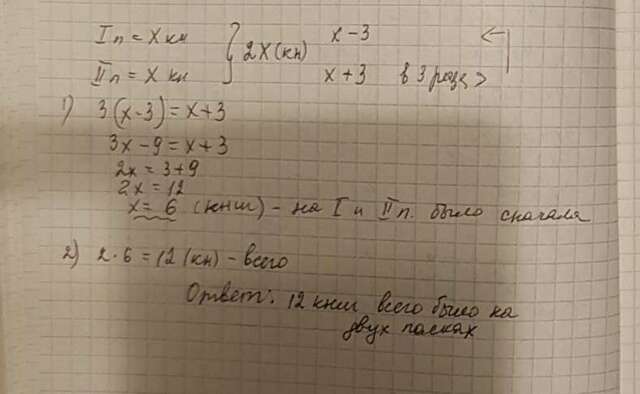 I п = X кн } 2X (кн) x-3 ←
II п = X кн x+3 в 3 раза >
1) 3(x-3)=x+3
3x-9=x+3
2x=3+9
2x=12
x=6 (книг) - на I и II п. было сначала
2) 2·6=12 (кн) - всего
Ответ: 12 книг всего было на
двух полках